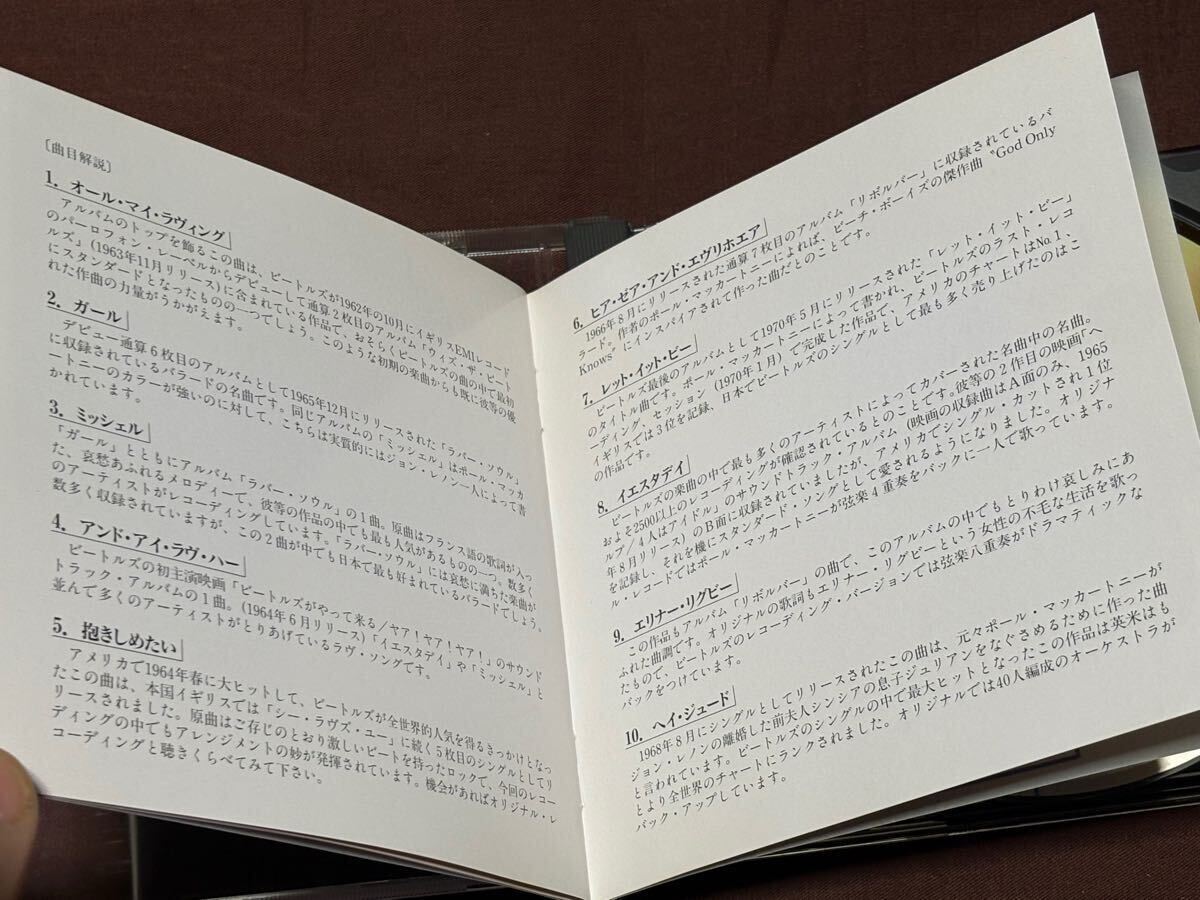 〔曲目解説〕
1. オール・マイ・ラヴィング
アルバムのトップを飾るこの曲は、ビートルズが1962年の10月にイギリスEMIレコード
のパーロフォン・レーベルからデビューして通算2枚目のアルバム「ウィズ・ザ・ビート
ルズ」(1963年11月リリース)に含まれている作品で、おそらくビートルズの曲の中で最初
にスタンダードとなったものの一つでしょう。このような初期の楽曲からも既に彼等の優
れた作曲の力量がうかがえます。
2. ガール
デビュー通算6枚目のアルバムとして1965年12月にリリースされた「ラバー・ソウル」
に収録されているバラードの名曲です。同じアルバムの「ミッシェル」はポール・マッカ
ートニーのカラーが強いのに対して、こちらは実質的にはジョン・レノン一人によって書
かれています。
3. ミッシェル
「ガール」とともにアルバム「ラバー・ソウル」の1曲。原曲はフランス語の歌詞が入っ
た、哀愁あふれるメロディーで、彼等の作品の中でも最も人気があるものの一つ。数多く
のアーティストがレコーディングしています。「ラバー・ソウル」には哀愁に満ちた楽曲が
数多く収録されていますが、この2曲が中でも日本で最も好まれているバラードでしょう。
4. アンド・アイ・ラヴ・ハー
ビートルズの初主演映画「ビートルズがやって来る/ヤァ!ヤァ!ヤァ!」のサウンド
トラック・アルバムの1曲。(1964年6月リリース)「イエスタデイ」や「ミッシェル」と
並んで多くのアーティストがとりあげているラヴ・ソングです。
5. 抱きしめたい
アメリカで1964年春に大ヒットして、ビートルズが全世界的人気を得るきっかけとなっ
たこの曲は、本国イギリスでは「シー・ラヴズ・ユー」に続く5枚目のシングルとしてリ
リースされました。原曲はご存じのとおり激しいビートを持ったロックで、今回のレコー
ディングの中でもアレンジメントの妙が発揮されています。機会があればオリジナル・レ
コーディングと聴きくらべてみて下さい。
6. ヒア・ゼア・アンド・エヴリホエア
1966年8月にリリースされた通算7枚目のアルバム「リボルバー」に収録されているバ
ラード。作者のポール・マッカートニーによれば、ビーチ・ボーイズの傑作曲〝God Only
Knows〟にインスパイアされて作った曲だとのことです。
7. レット・イット・ビー
ビートルズ最後のアルバムとして1970年5月にリリースされた「レット・イット・ビー」
のタイトル曲です。ポール・マッカートニーによって書かれ、ビートルズのラスト・レコ
ーディング、セッション(1970年1月)で完成した作品で、アメリカのチャートはNo.1、
イギリスでは3位を記録、日本でビートルズのシングルとして最も多く売り上げたのはこ
の作品です。
8. イエスタデイ
ビートルズの楽曲の中で最も多くのアーティストによってカバーされた名曲中の名曲。
およそ2500以上のレコーディングが確認されているとのことです。彼等の2作目の映画「ヘ
ルプ/4人はアイドル」のサウンドトラック・アルバム(映画の収録曲はA面のみ、1965
年8月リリース)のB面に収録されていましたが、アメリカでシングル・カットされ1位
を記録し、それを機にスタンダード・ソングとして愛されるようになりました。オリジナ
ル・レコードではポール・マッカートニーが弦楽4重奏をバックに一人で歌っています。
9. エリナー・リグビー
この作品もアルバム「リボルバー」の曲で、このアルバムの中でもとりわけ哀しみにあ
ふれた曲調です。オリジナルの歌詞もエリナー・リグビーという女性の不毛な生活を歌っ
たもので、ビートルズのレコーディング・バージョンでは弦楽八重奏がドラマティックな
バックをつけています。
10. ヘイ・ジュード
1968年8月にシングルとしてリリースされたこの曲は、元々ポール・マッカートニーが
ジョン・レノンの離婚した前夫人シンシアの息子ジュリアンをなぐさめるために作った曲
と言われています。ビートルズのシングルの中で最大ヒットとなったこの作品は英米はも
とより全世界のチャートにランクされました。オリジナルでは40人編成のオーケストラが
バック・アップしています。